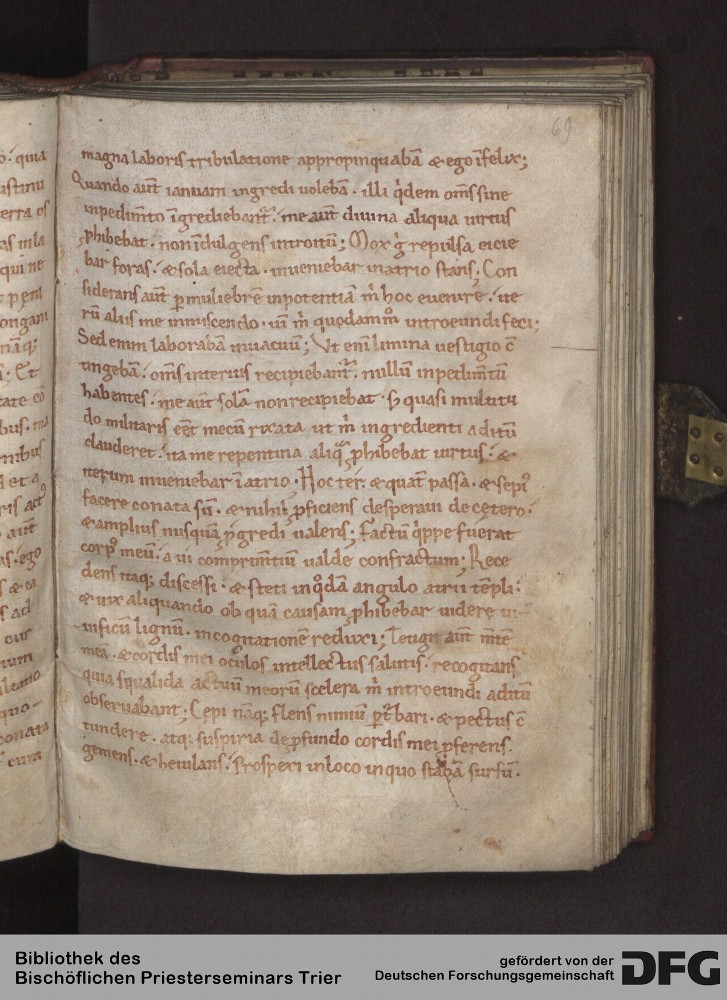 69
magna laboris tribulatione appropinquabā & ego īfelix;
Quando aūt ianuam ingredi uolebā · illi q̇dem om̄s sine
inpedim̄to īgrediebant᷑ · me aūt diuina aliqua uirtus
ꝓhibebat · non īdulgens introitū; Mox g̊ repulsa eicie
bar foras · & sola eiecta · inueniebar in atrio stans; Con
siderans aūt ꝑ muliebrē inpotentiā m̄ hoc euenire · ite
rū aliis me inmiscendo · uī m̄ quodam m̊ introeundi feci;
Sed enim laborabā in uacuū; Vt eni limina uestigio c̄
tingebā · om̄s interius recipiebant᷑ · nullū inpedim̄tū
habentes · me aūt solā non recipiebat · S; quasi multitu
do militaris eēt mecū rixata ut m̄ ingredienti aditū
clauderet · ita me repentina aliq̄ ꝓhibebat uirtus · &
iterum inueniebar ī atrio · Hoc ter & quat̄ passa · & sepi᷒
facere conata sū · & nihil ꝓficiens desperaui de cętero ·
& amplius nusquā ꝓgredi ualens; Factū q̇ppe fuerat
corp᷒ meū · a ui comprim̄tiū ualde confractum; Rece
dens itaq; discessi · & steti in q̊dā angulo atrii tēpli ·
& uix aliquando ob quā causam ꝓhibebar uidere ui
uificū lignū · in cognitationē reduxi; Tetigit aūt m̄tē
meā · & cordis mei oculos intellectus salutis · recogitans
quia squalida actuū meorū scelera m̄ introeundi aditū
obseruabant; Cepi nāq; flens nimiū ꝑt᷑bari · & pectus c̄
tundere · atq; suspiria de ꝓfundo cordis mei ꝓferens ·
gemens · & heiulans · Prospexi in loco in quo stabā sursū ·
Bibliothek des
Bischöflichen Priesterseminars Trier
gefördert von der
Deutschen Forschungsgemeinschaft
DFG